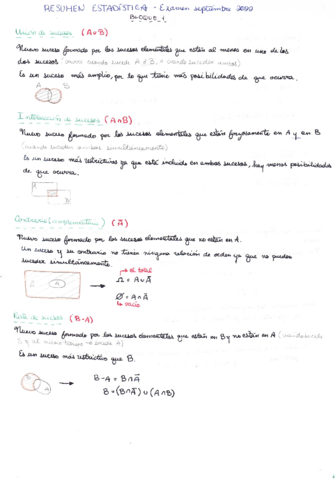 RESUMEN ESTADÍSTICA - Examen septiembre 2022
BLOQUE 1
Unión de sucesos (A∪B)
Nuevo suceso formado por los sucesos elementales que están al menos en uno de los
dos sucesos (ocurre cuando sucede A o B, o cuando suceden ambos)
Es un suceso más amplio, por lo que tiene más posibilidades de que ocurra.
A B
Intersección de sucesos (A∩B)
Nuevo suceso formado por los sucesos elementales que están forzosamente en A y en B
(cuando suceden ambos simultáneamente)
Es un suceso más restrictivo ya que está incluido en ambos sucesos, hay menos posibilidades
de que ocurra.
A
B
Contrario (complementario) (Ā)
Nuevo suceso formado por los sucesos elementales que no están en A.
Un suceso y su contrario no tienen ninguna relación de orden ya que no pueden
suceder simultáneamente.
el total
Ā A Ω = A∪Ā
Ø = A∩Ā
vacío
Resta de sucesos (B-A)
Nuevo suceso formado por los sucesos elementales que están en B y no están en A
B y al mismo tiempo no sucede A)
Es un suceso más restrictivo que B.
B-A = B∩Ā
B = (B∩Ā) ∪ (A∩B)